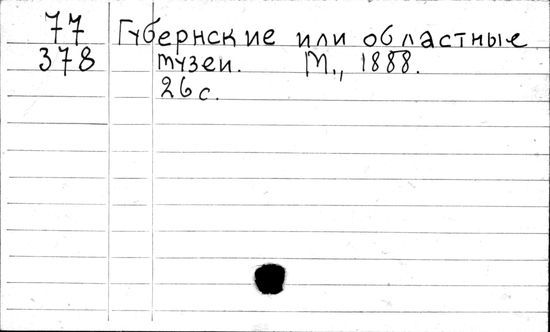 77 Губернские или областные
378 музеи. М., 1888.
26 с.